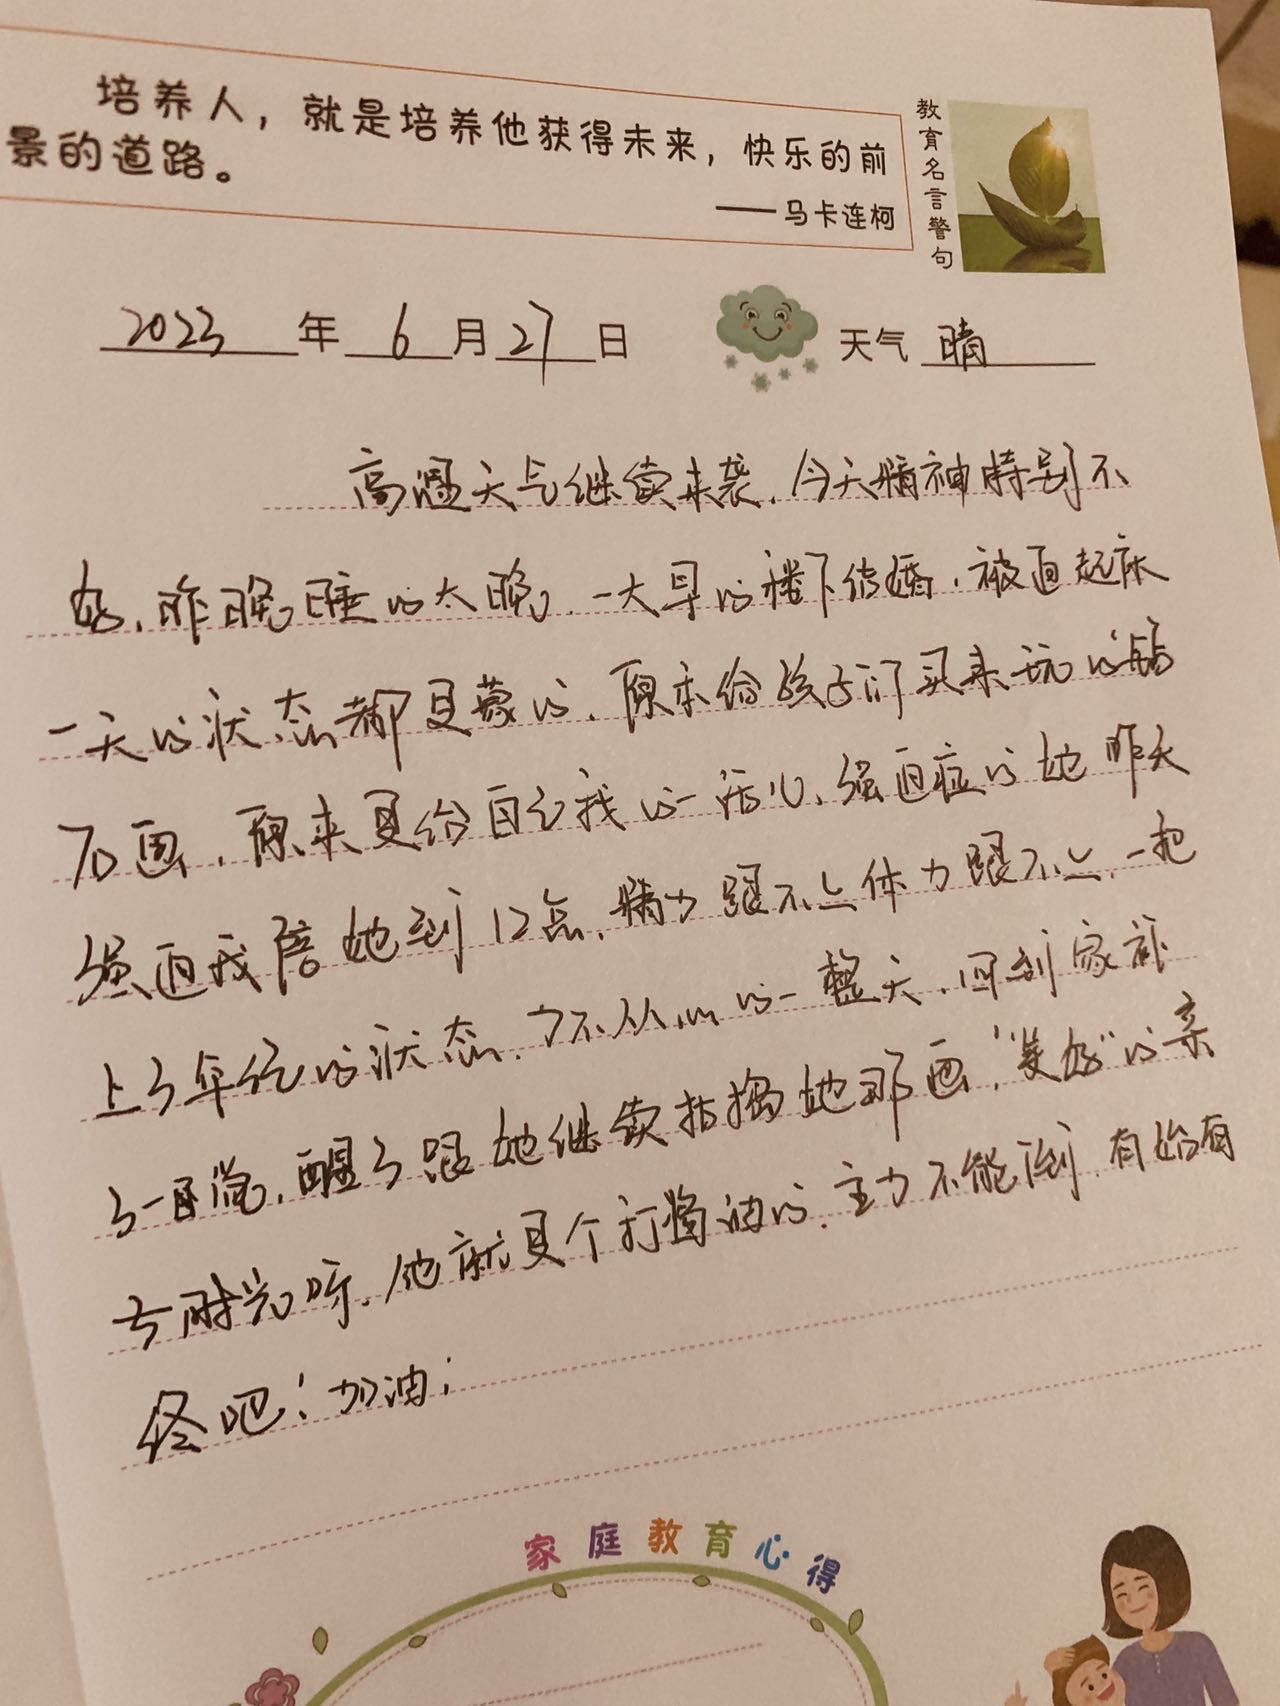 培养人，就是培养他获得未来，快乐的前
景的道路。
——马卡连柯
教育名言警句
2023 年 6 月 27 日 天气 晴
高温天气继续来袭，今天精神特别不
好，昨晚睡的太晚，一大早的楼下结婚，被迫起床
一天的状态都是蒙的，原本给孩子们买来玩的钻
石画，原来是给自己找的一活儿，强迫症的她昨天
强迫我陪她到12点，精力跟不上体力跟不上，一把
上了年纪的状态，力不从心的一整天，回到家补
了一觉，醒了跟她继续捣她那画，"美好"的亲
子时光呀，他就是个打酱油的，主力不能倒，有始有
终吧！加油！
家庭教育心得